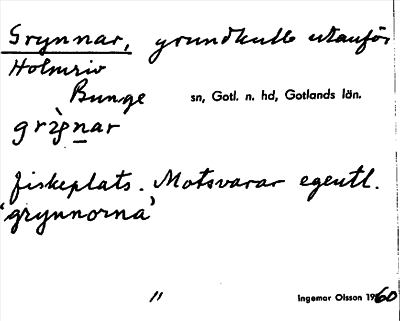 Grynnar, grundkulle utanför
Holmriv
Bunge sn, Gotl. n. hd, Gotlands län.
grı̀gnar
fiskeplats. Motsvarar egentl.
'grynnorna'
"
Ingemar Olsson 1960